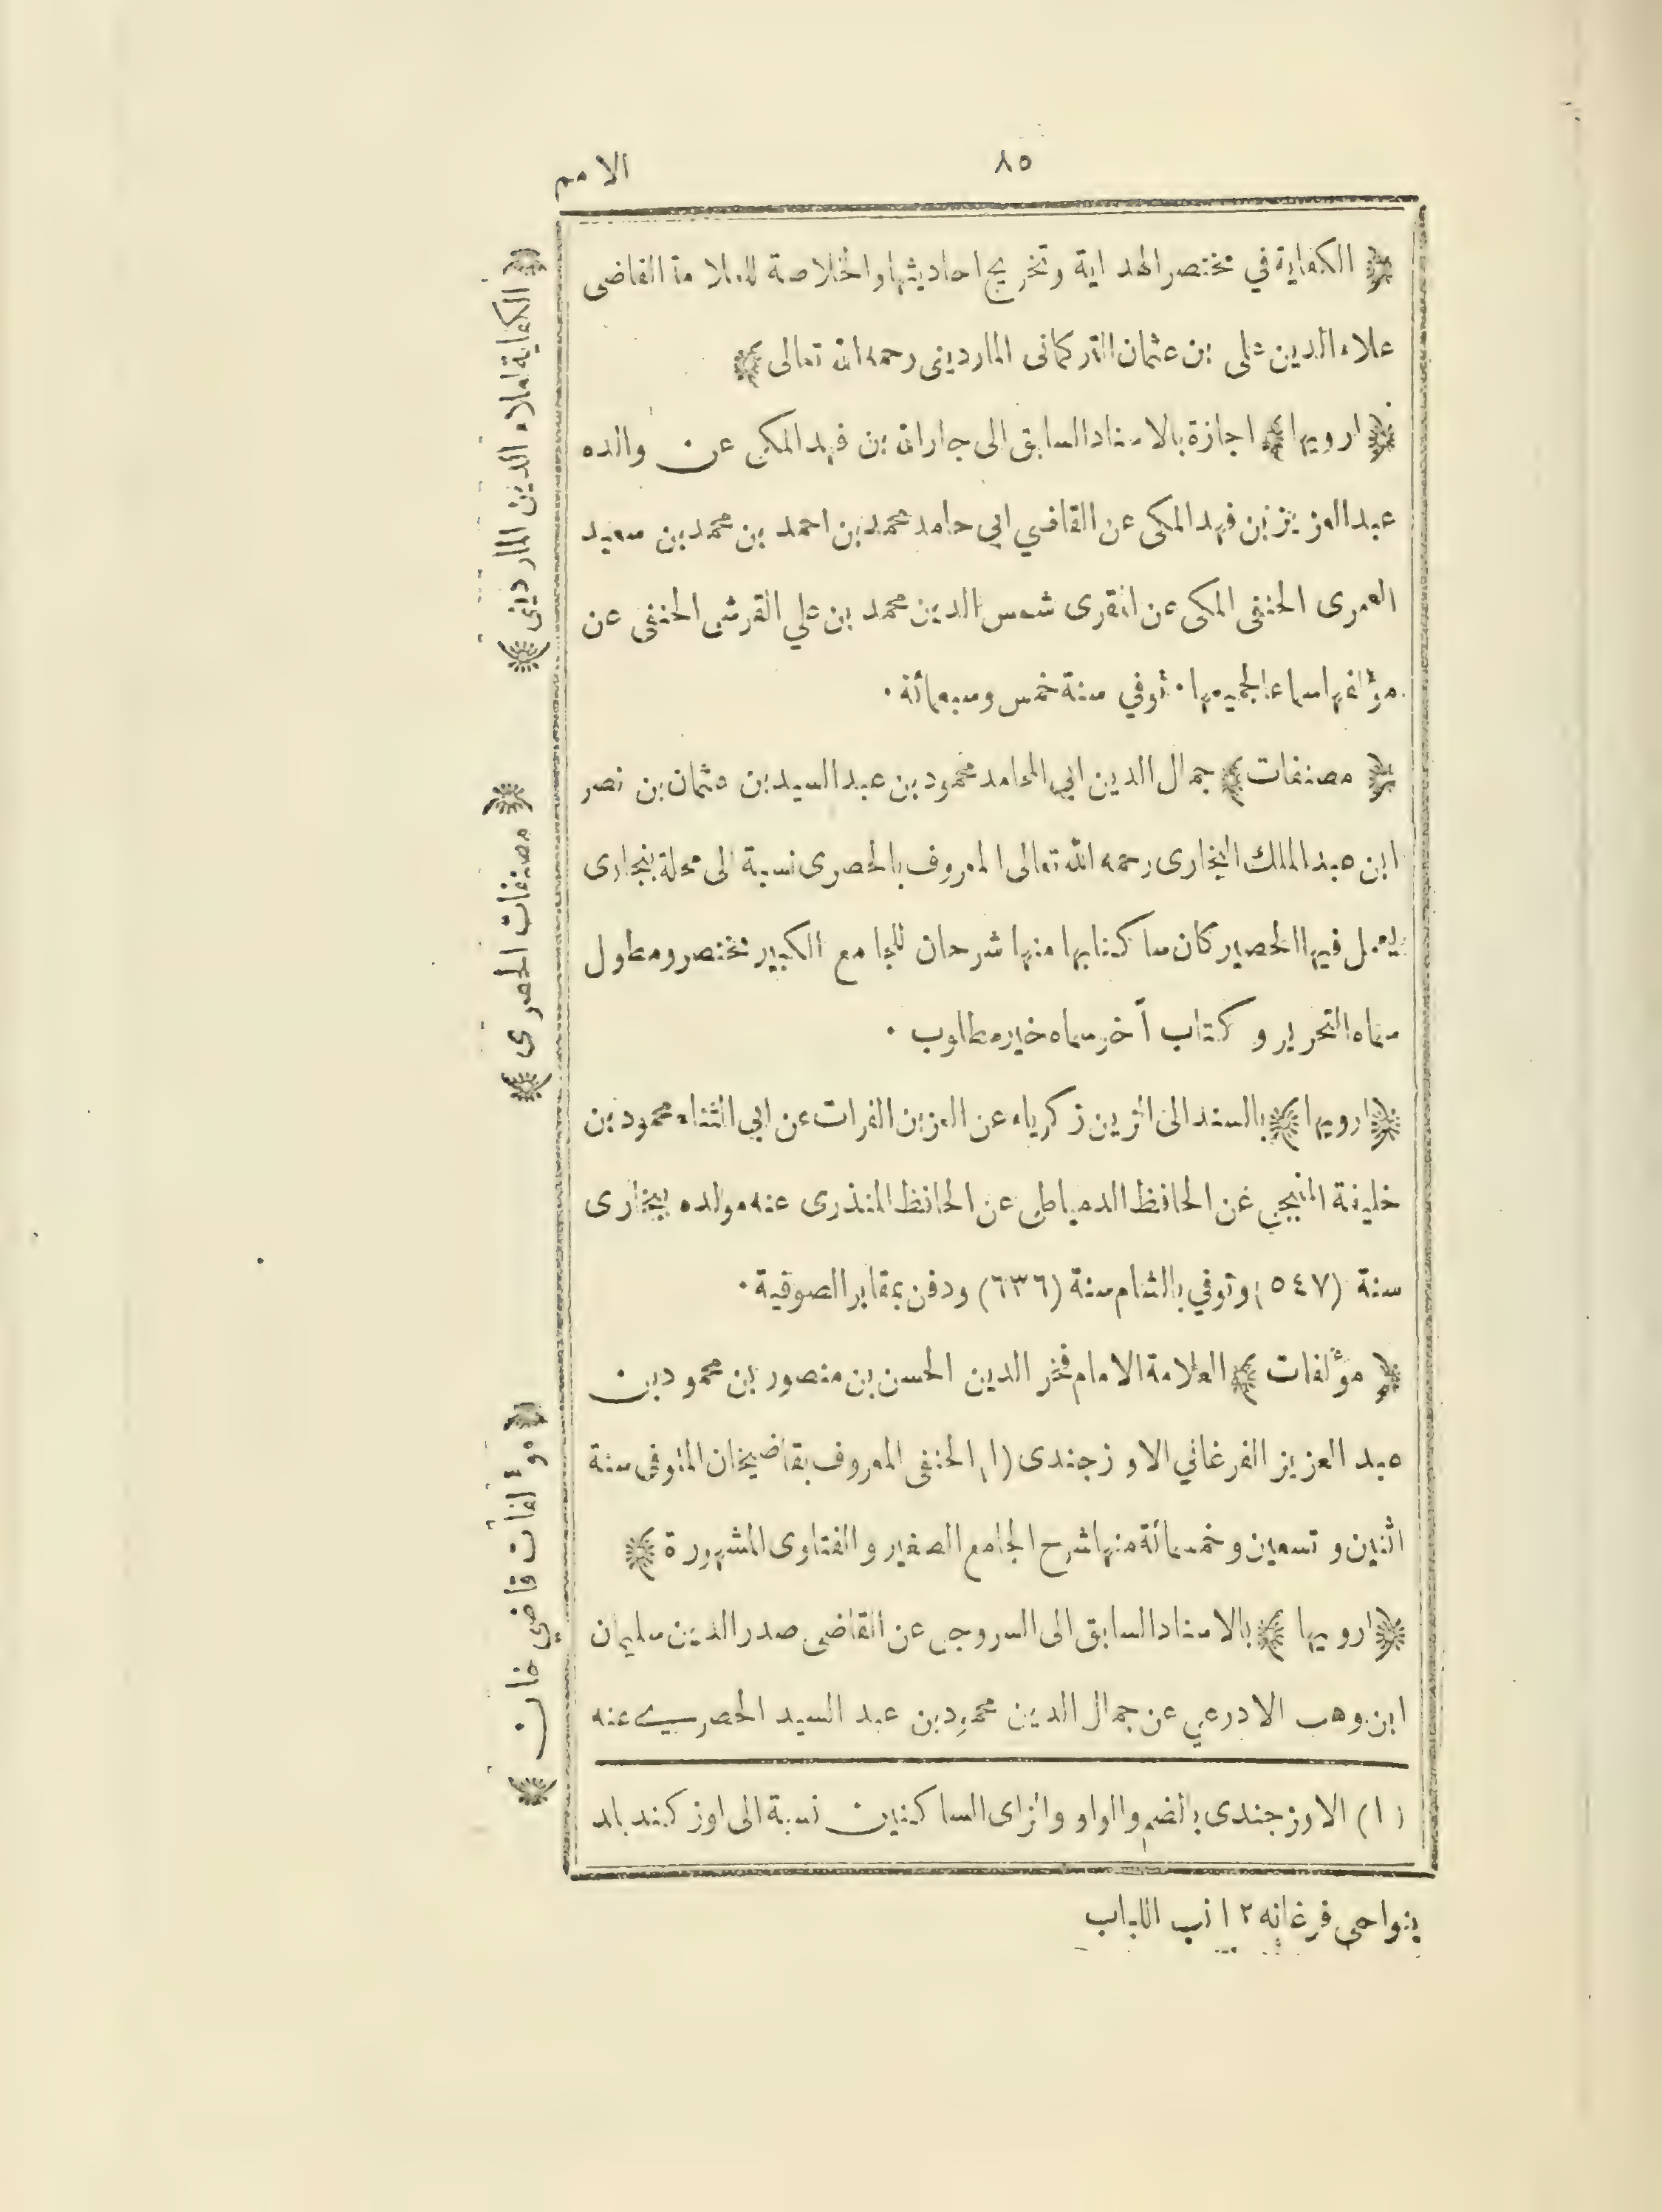 ٨٥
الامم
﴿ الكفاية في مختصر الهداية وتخريج احاديثها والخلاصة للعلامة القاضى
علاء الدين على بن عثمان التركمانى الماردينى رحمه الله تعالى ﴾
﴿ ارويها ﴾ اجازة بالاسناد السابق الى جار الله بن فهد المكى عن والده
عبد العزيز بن فهد المكى عن القاضي ابي حامد محمد بن احمد بن محمد بن سعيد
العمرى الحنفى المكى عن المقرى شمس الدين محمد بن علي القرشى الحنفى عن
مؤلفها سماعا لجميعها ٠ توفي سنة خمس وسبعمائة ٠
﴿ مصنفات ﴾ جمال الدين ابي المحامد محمود بن عبد السيد بن عثمان بن نصر
ابن عبد الملك البخارى رحمه الله تعالى المعروف بالحصرى نسبة الى محلة ببخارى
يعمل فيها الحصير كان ساكنا بها منها شرحان للجامع الكبير مختصر ومطول
سماه التحرير و كتاب آخر سماه خير مطلوب ٠
﴿ ارويها ﴾ بالسند الى الزين زكرياء عن العز بن الفرات عن ابي الثناء محمود بن
خليفة المنبجي عن الحافظ الدمياطي عن الحافظ المنذرى عنه مولده ببخارى
سنة (٥٤٧) وتوفي بالشام سنة (٦٣٦) ودفن بمقابر الصوفية ٠
﴿ مؤلفات ﴾ العلامة الامام فخر الدين الحسن بن منصور بن محمود بن
عبد العزيز الفرغاني الاوزجندى (١) الحنفى المعروف بقاضيخان المتوفى سنة
اثنين و تسعين و خمسمائة منها شرح الجامع الصغير و الفتاوى المشهورة ﴾
﴿ ارويها ﴾ بالاسناد السابق الى السروجى عن القاضى صدر الدين سليمان
ابن وهب الادرعي عن جمال الدين محمود بن عبد السيد الحصرى عنه
(١) الاوزجندى بالضم والواو والزاى الساكنين نسبة الى اوز كند بلد
بنواحى فرغانه ١٢ لب اللباب
﴿ الكفاية لعلاء الدين الماردينى ﴾
﴿ مصنفات الحصرى ﴾
﴿ مؤلفات قاضي خان ﴾